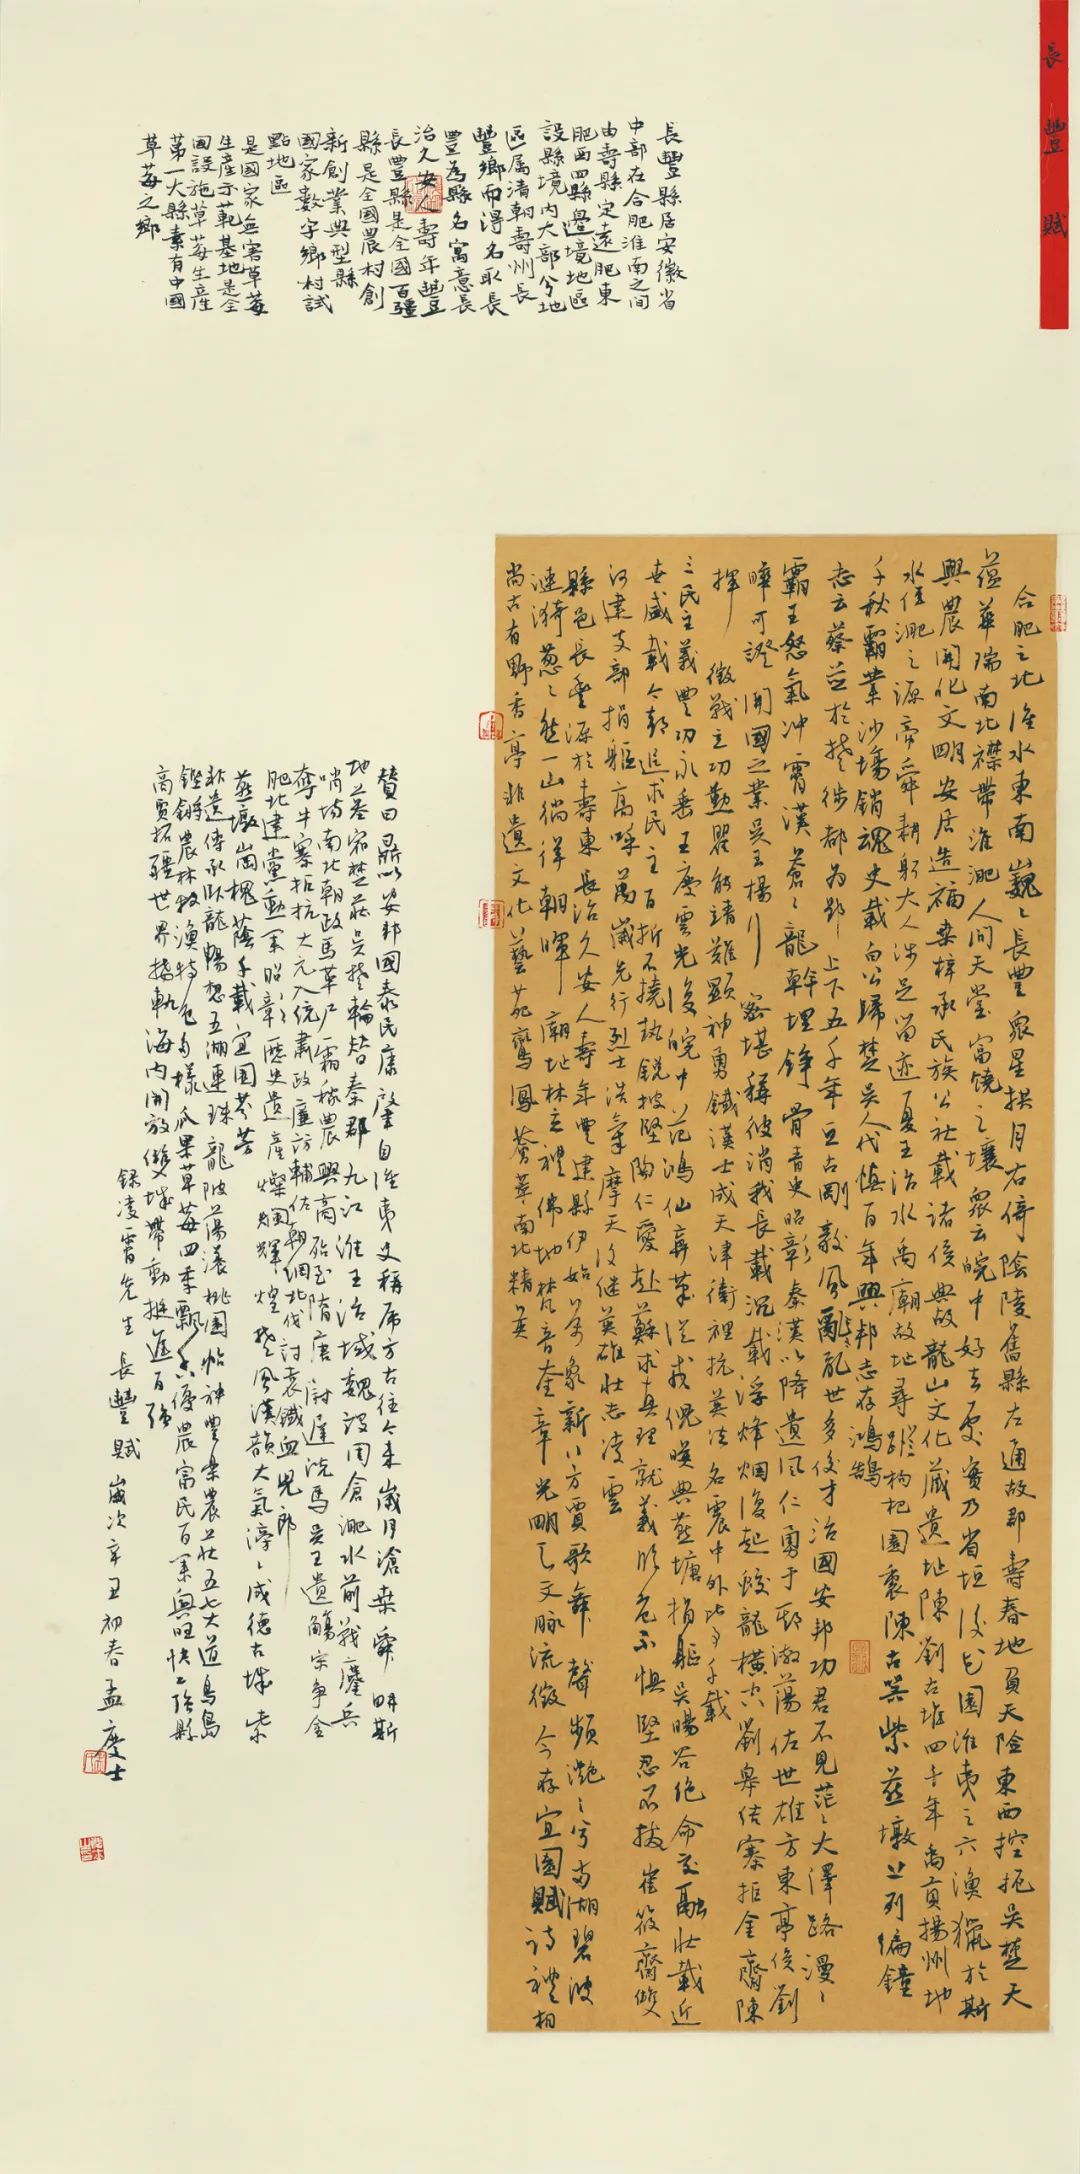 長豐賦
長豐縣居安徽省
中部在合肥淮南之间
由壽縣定遠肥東
肥西四縣邊境地區
設縣境内大部分地
區属清朝壽州長
豐鄉而得名取長
豐為縣名寓意長
治久安人壽年豐
長豐縣是全國百疆
縣是全國農村創
新創業典型縣
國家數字鄉村試
點地區
是國家無害草莓
生產示範基地是全
国設施草莓生産
第一大縣素有中國
草莓之鄉
合肥之北淮水東南巍巍長豐眾星拱月右倚陰陵舊縣左通故郡壽春地負天險東西控扼吴楚天
蕴華瑞南北襟帶淮淝人间天堂富饒之壤眾云皖中好去處實乃省垣後花園淮夷之六渔獵於斯
興農開化文明安居造福桑梓承民族公社載諸侯典故龍山文化藏遺址陳劉古堆四千年禹貢揚州地
水住淝之源帝舜耕躬大人涉足留迹夏王治水禹廟故址尋蹤枸杞園裏陳古吴柴蒸墩上列編鐘
千秋霸業沙場銷魂史載白公歸楚吴人代慎百年興邦志存鴻鵠
志云蔡並於楚徙都為郢上下五千年亘古剛毅風亂世多俊才治國安邦功君不見茫茫大澤路漫漫
霸王怒氣冲霄漢蒼蒼龍幹埋錚骨青史昭彰秦漢以降遺風仁勇于邳激蕩佐世雄方東亭侯劉
曄可證開國之業吴王楊行密堪稱彼消我長載沉載浮烽烟復起蛟龍横空劉皋结寨拒金齋陳
揮徵戰主功勤瞿能靖難顯神勇鐵漢士成天津衛裡抗英法名震中外比于千載
三民主義豐功永垂王慶雲光復皖中范鴻仙棄筆從戎倪映典燕塘捐軀吴暘谷绝命交融壮載近
世盛載今朝追求民主百折不撓執鋭披堅陶仁愛赴蘇求真理就義臨危不惧堅忍不拔崔筱齋雙
河建支部捐軀高呼萬歲先行烈士浩氣摩天後继英雄壮志凌雲
縣邑長豐源於壽東長治久安人壽年豐建縣伊始萬象新八方賈歌舞聲頻灔灔兮高湖碧波
漣漪葱葱然一山徜徉朝暉廟址林立禮佛地梵音奎章光明之文脉流徵今存宜園賦诗禮相
尚古有野香亭非遺文化藝苑鸞鳳薈萃南北精英
贊曰鼎以安邦國泰民康肇自淮夷史稱虎方古往今来歲月滄桑舜耕斯
地墓宕楚莊吴楚輪替秦郡九江淮王治域魏設围倉淝水前戰鏖兵
哨場南北朝政馬革尸霜稼農興高殆至隋唐尉遲洗馬吴王遺觴宋争金
奪牛寨拒抗大元入统肅政廉訪輔佐朝纲北伐討袁鐵血兒郎
肥北建黨動軍昭彰歷史遺産燦烂輝煌楚風漢韻大氣滂滂成德古城紫
蒸墩崗槐蔭千載宜園芬芳
非遺傳承卧龍暢想五湖連珠龍陂蕩漾桃園帖神豊樂農莊五七大道鳥島
鏗鏘農林牧漁特色多樣瓜果草莓四季飄香優農富民百業興旺快上强縣
高質拓疆世界接軌海内開放雙城帶動挺進百强
録凌霄先生長豐賦歲次辛丑初春孟慶士